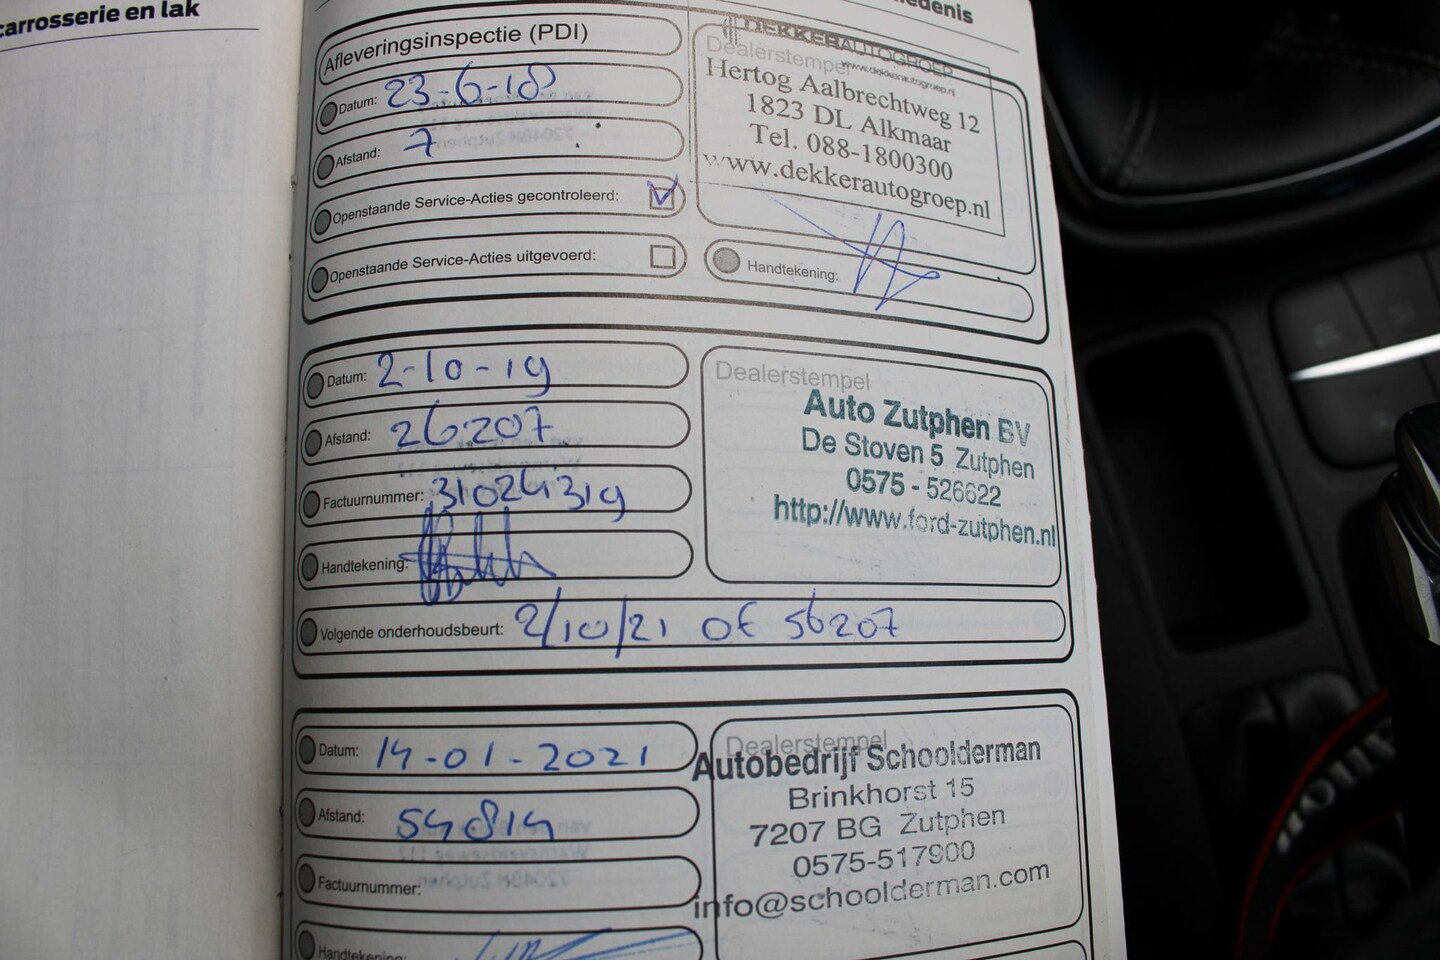 carrosserie en lak
Afleveringsinspectie (PDI)
Datum: 23-6-18
Afstand: 7
Openstaande Service-Acties gecontroleerd:
Openstaande Service-Acties uitgevoerd:
Dealerstempel
DEKKERAUTOGROEP
www.dekkerautogroep.nl
Hertog Aalbrechtweg 12
1823 DL Alkmaar
Tel. 088-1800300
www.dekkerautogroep.nl
Handtekening:
Datum: 2-10-19
Afstand: 26207
Factuurnummer: 31024319
Handtekening:
Volgende onderhoudsbeurt: 2/10/21 OF 56207
Dealerstempel
Auto Zutphen BV
De Stoven 5 Zutphen
0575 - 526622
http://www.ford-zutphen.nl
Datum: 14-01-2021
Afstand: 54814
Factuurnummer:
Handtekening:
Dealerstempel
Autobedrijf Schoolderman
Brinkhorst 15
7207 BG Zutphen
0575-517900
info@schoolderman.com